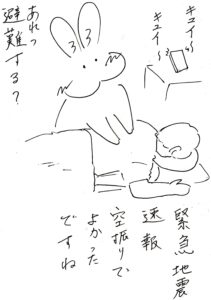 キュイーッ
キュイーッ
あれっ
避難する？
緊急地震
速報
空振りで
よかった
ですね